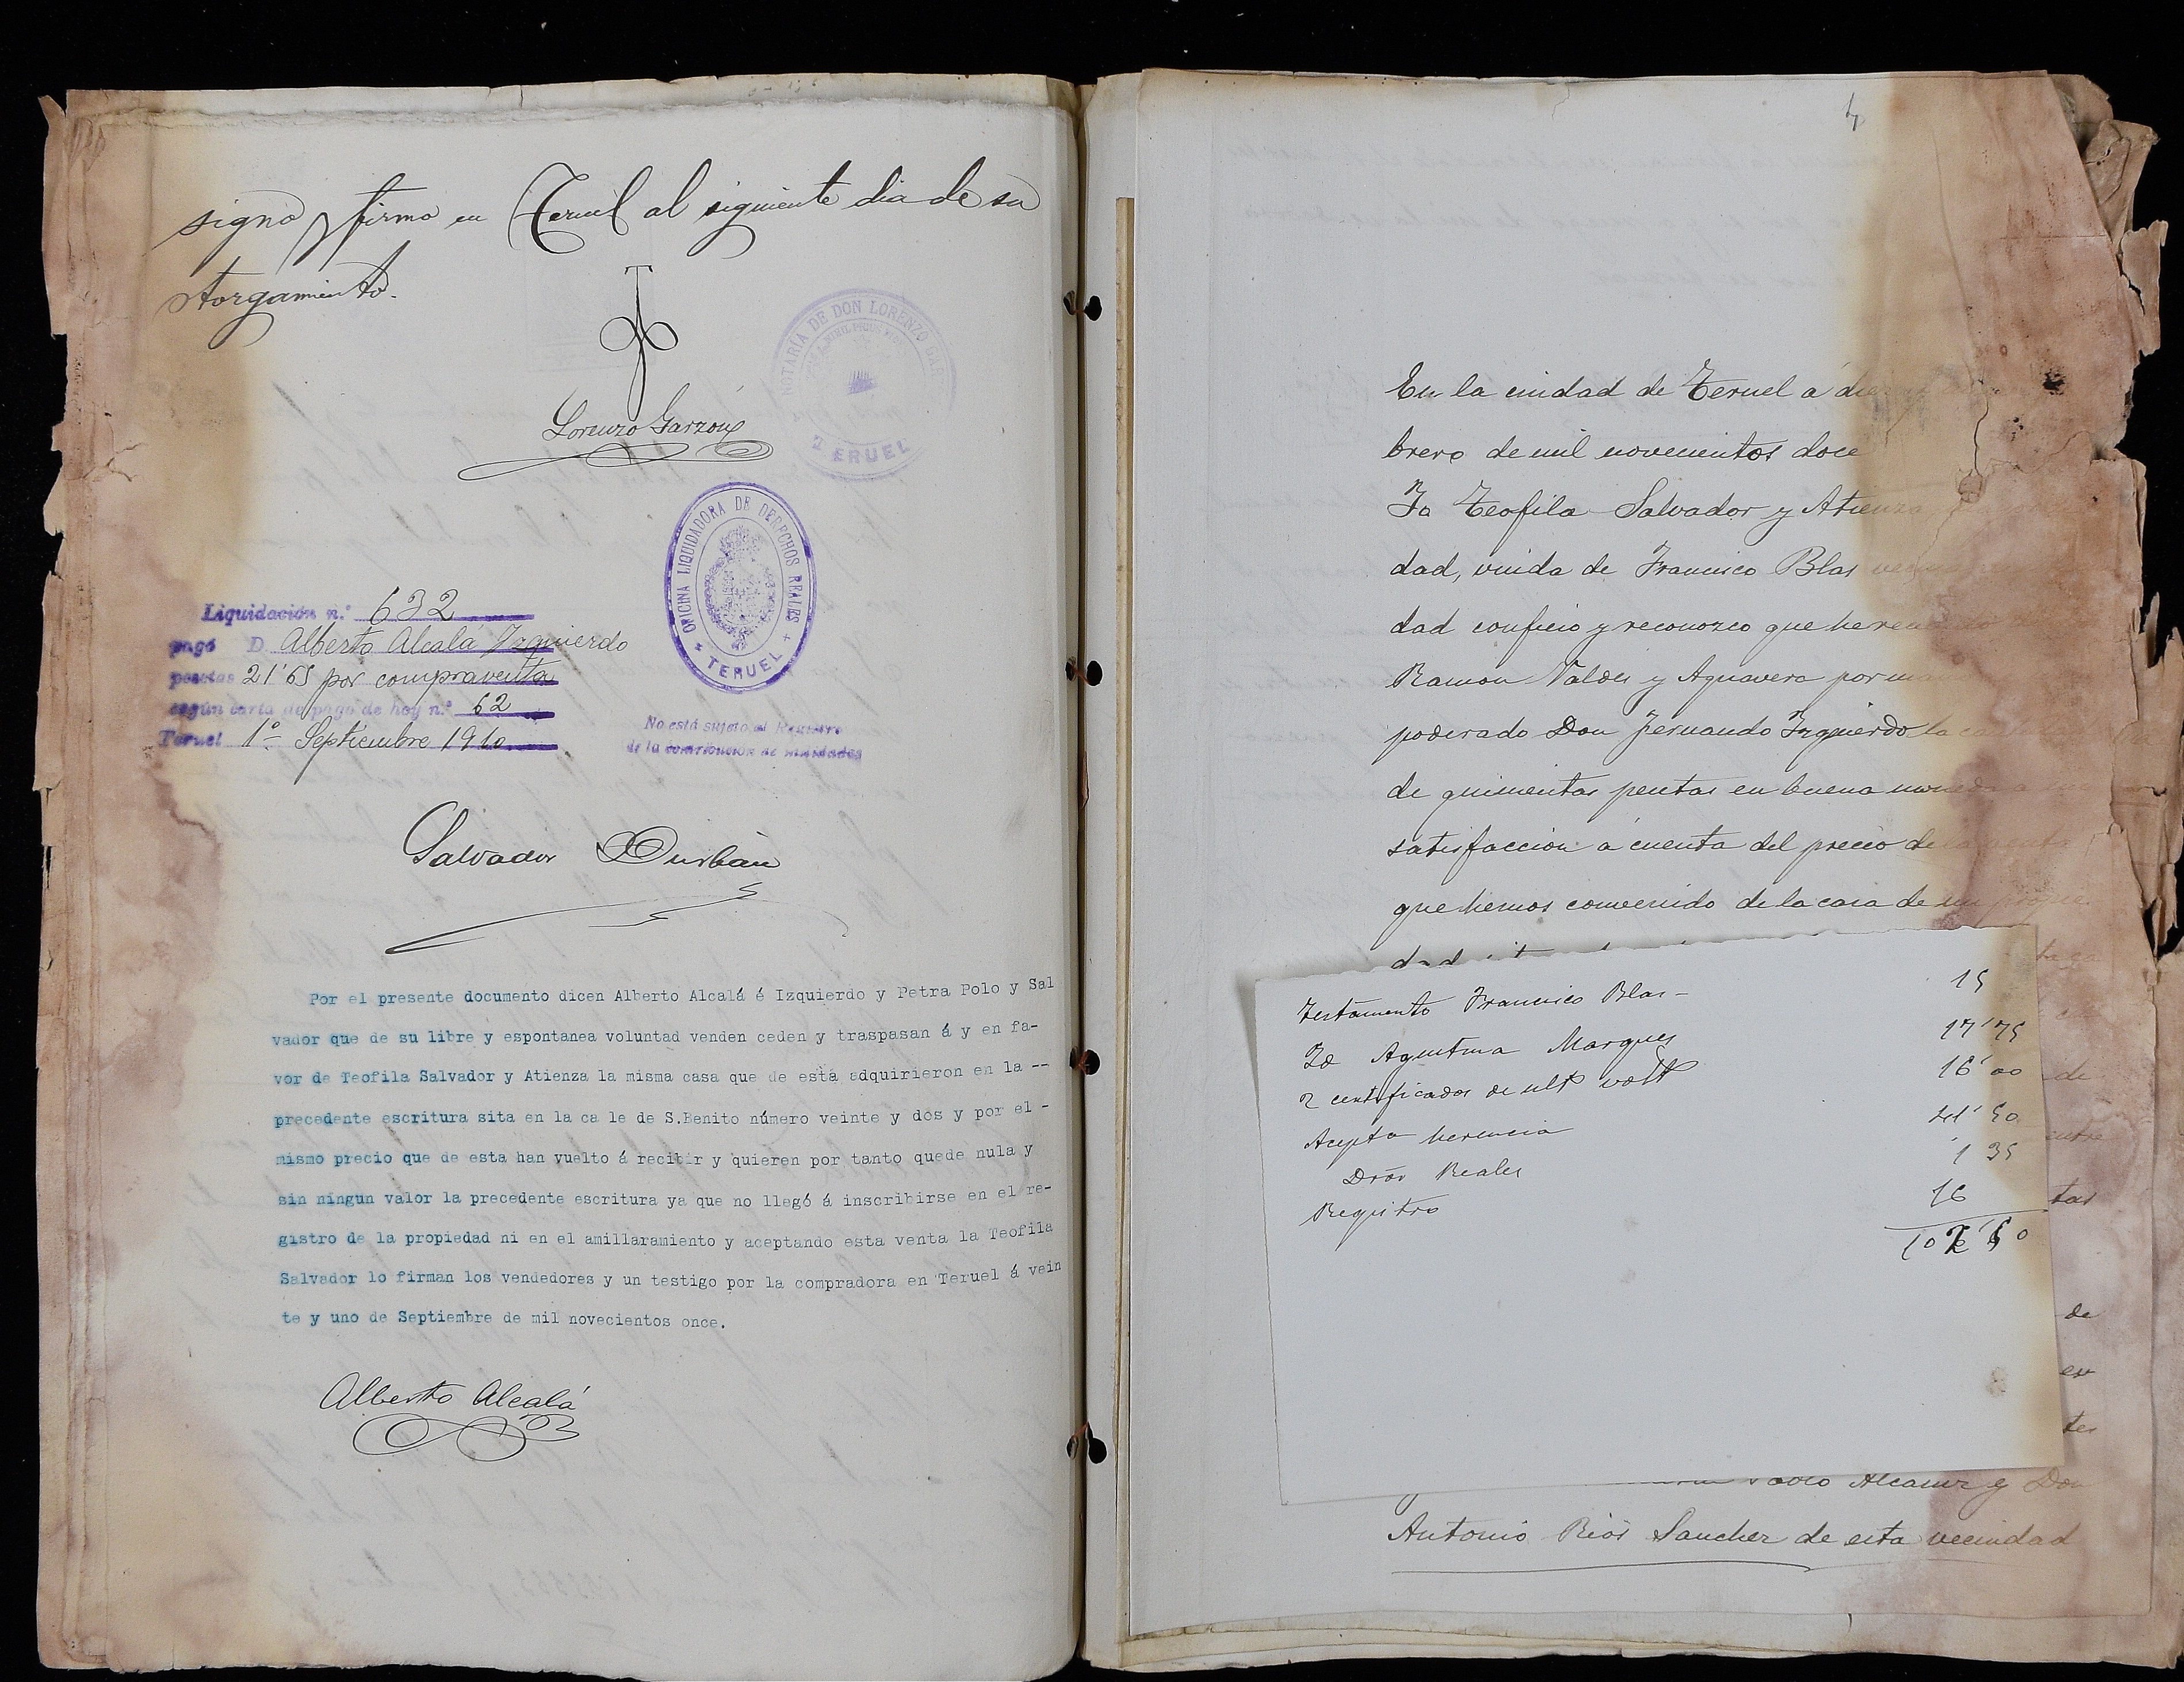 signo y firmo en Teruel al siguiente dia de su
otorgamiento.
NOTARÍA DE DON LORENZO
TERUEL
Lorenzo Garzón
OFICINA LIQUIDADORA DE DERECHOS REALES
TERUEL
Liquidación n.º 632
pagó D. Alberto Alcala Izquierdo
pesetas 21'65 por compraventa
según carta de pago de hoy n.º 62
Teruel 1º Septiembre 1910
No está sujeto al Registro
de la contribución de utilidades
Salvador Durbán
Por el presente documento dicen Alberto Alcalá é Izquierdo y Petra Polo y Sal
vador que de su libre y espontanea voluntad venden ceden y traspasan á y en fa-
vor de Teofila Salvador y Atienza la misma casa que de esta adquirieron en la --
precedente escritura sita en la ca le de S.Benito número veinte y dos y por el -
mismo precio que de esta han vuelto á recibir y quieren por tanto quede nula y
sin ningun valor la precedente escritura ya que no llegó á inscribirse en el re-
gistro de la propiedad ni en el amillaramiento y aceptando esta venta la Teofila
Salvador lo firman los vendedores y un testigo por la compradora en Teruel á vein
te y uno de Septiembre de mil novecientos once.
Alberto Alcalá
En la ciudad de Teruel a
brero de mil novecientos doce
Yo Teofila Salvador y Atienza
dad, viuda de Francisco Blas
dad confieso y reconozco que he
Ramon Valdes y Aguavera por
poderado Don Fernando Izquierdo la
de quinientas pesetas en buena moneda
satisfaccion á cuenta del precio de la
que hemos convenido de la casa de mi
Testamento Francisco Blas - 15
Id Agustina Marques 17'75
2 certificados de ult volt 16'00
Acepta herencia 41'50
Dros Reales 1 35
Registro 16
de
tas
de
en
tes
Alcaniz y Don
Antonio Rios Sanchez de esta vecindad